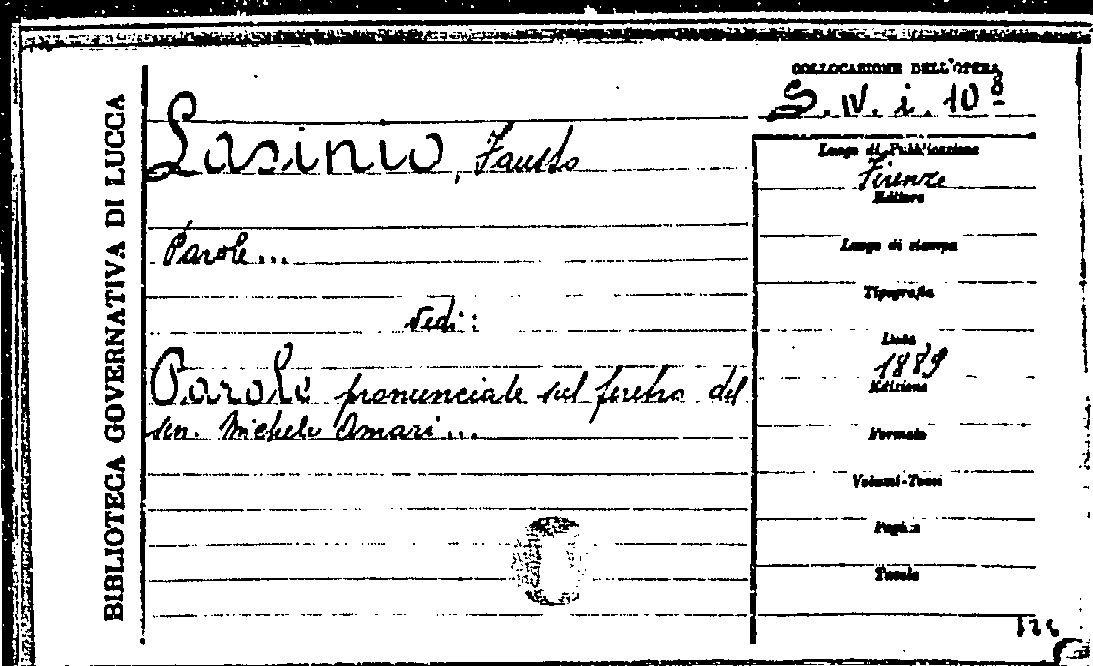 BIBLIOTECA GOVERNATIVA DI LUCCA
COLLOCAZIONE DELL'OPERA
S. IV. i. 10
Lasinio, Fausto
Parole...
Vedi:
Parole pronunciate sul feretro del
sen. Michele Amari...
Luogo di Pubblicazione
Firenze
Editore
Luogo di stampa
Tipografia
Data
1889
Edizione
Formato
Volumi-Tomi
Pagine
Tavole